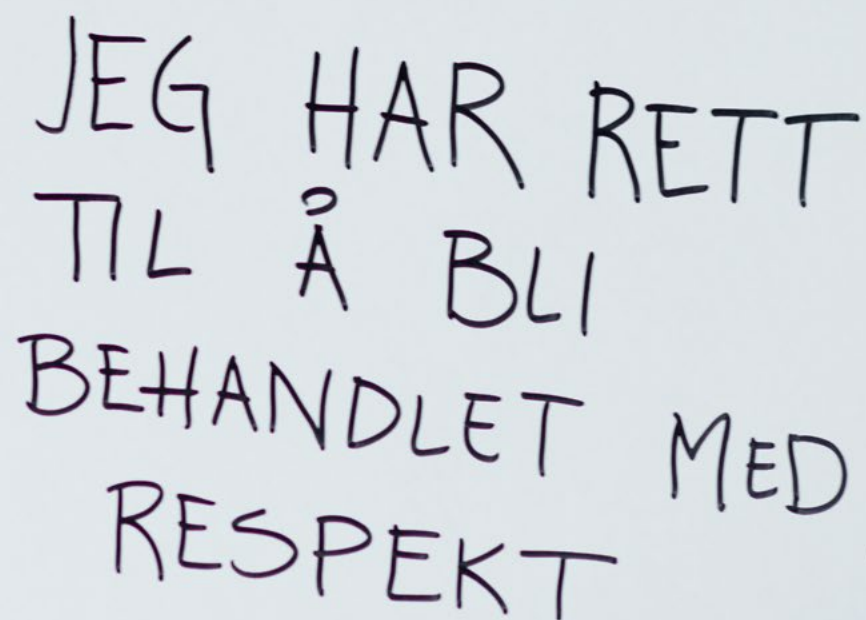 JEG HAR RETT
TIL Å BLI
BEHANDLET MED
RESPEKT